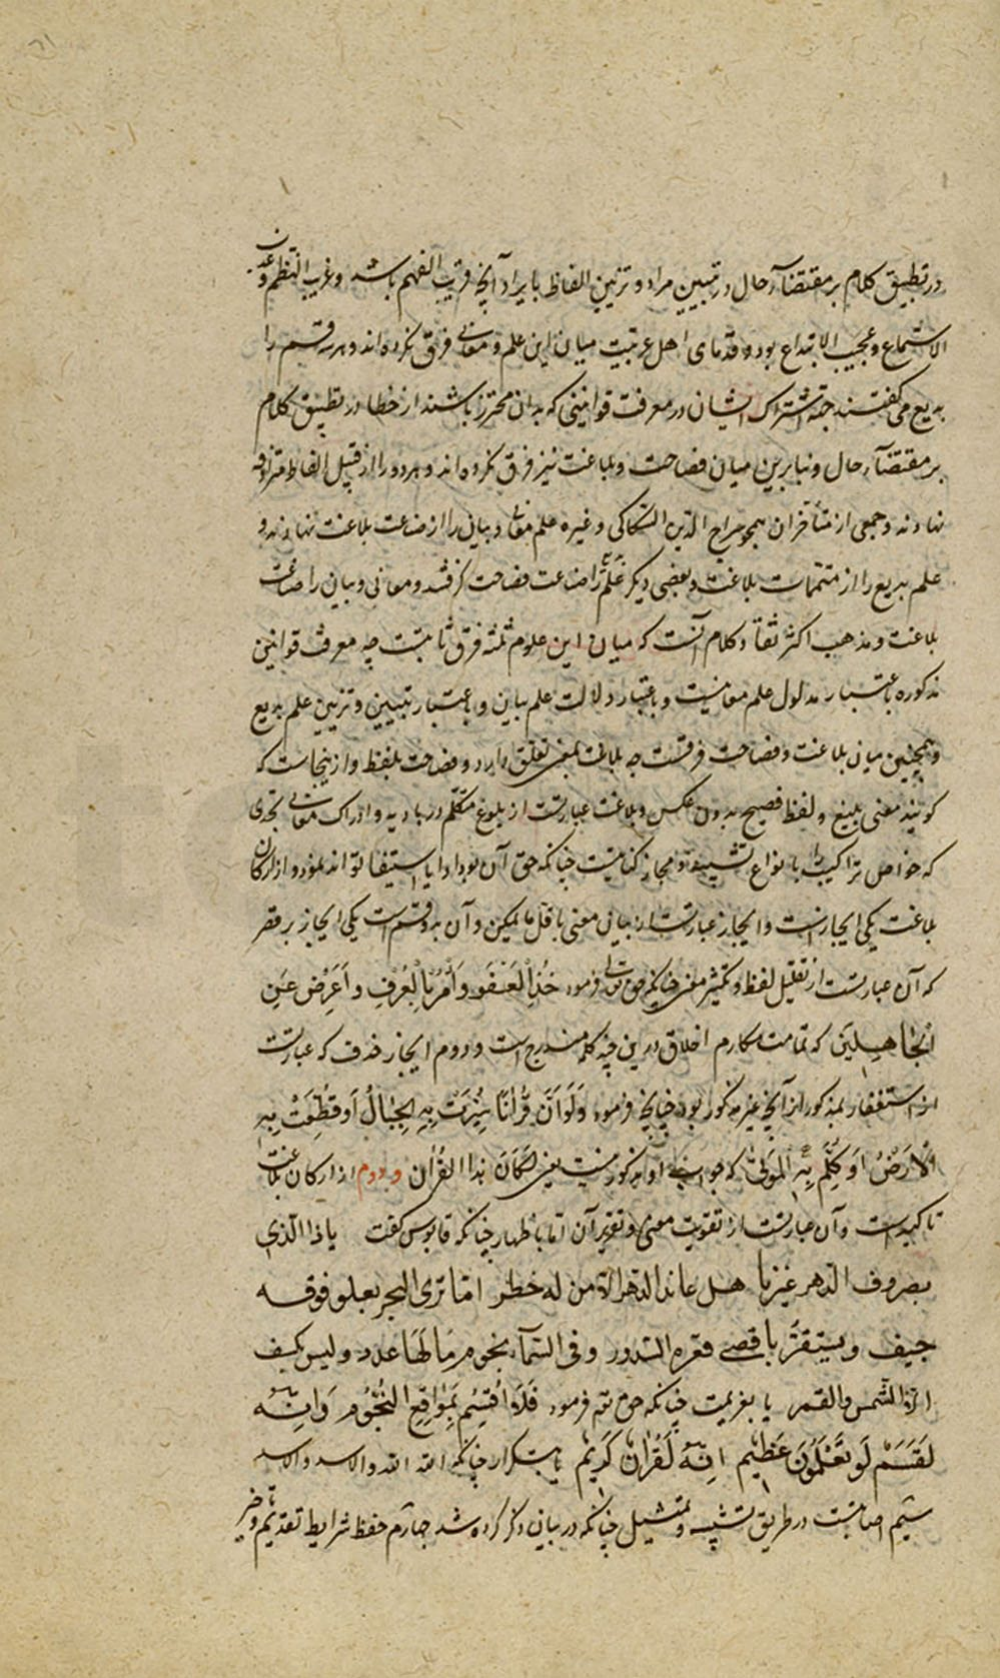 در تطبیق کلام بر مقتضآء حال در تبیین مراد و تزیین الفاظ بایراد آنچه قریب الفهم باشد و غریب النظم و عذب
الاستماع و عجیب الابتداع بود و قدمای اهل عربیت میان این علم و معانی فرق نکرده‌اند و هر سه قسم را
بدیع می گفتند جهة اشتراک ایشان در معرفت قوانینی که بدان محترز باشند از خطا در تطبیق کلام
بر مقتضآء حال و بنابرین میان فصاحت و بلاغت نیز فرق نکرده‌اند و هر دو را از قبیل الفاظ مترادفه
نهادند و جمعی از متأخران همچو سراج الدین السکاکی و غیره علم معانی و بیان را از صناعت بلاغت نهادند و
علم بدیع را از متممات بلاغت و بعضی دیگر علم را صناعت فصاحت گرفتند و معانی و بیان را صناعت
بلاغت و مذهب اکثر ثقاة کلام آنست که میان این علوم ثلثه فرق ثابتست چه معرفت قوانین
مذکوره باعتبار مدلول علم معانیست و باعتبار دلالت علم بیان و باعتبار تبیین و تزیین علم بدیع
و همچنین میان بلاغت و فصاحت فرقست چه بلاغت بمعنی تعلق دارد و فصاحت بلفظ و ازینجاست که
گویند معنی بلیغ و لفظ فصیح بدون عکس و بلاغت عبارتست از بلوغ متکلم در تادیه و ادراک معانی بحدی
که خواص تراکیب را بانواع تشبیه و مجاز کنایت چنانکه حق آن بود ادا یا استیفا تواند نمود و از ارکان
بلاغت یکی ایجازست و ایجاز عبارتست از بیان معنی باقل ما یمکن و آن بدو قسم است یکی ایجاز بر قصر
که آن عبارتست از تقلیل لفظ و تکثیر معنی چنانکه حق تعالی فرمود خُذِ الْعَفْوَ وَأْمُرْ بِالْعُرْفِ وَأَعْرِضْ عَنِ
الْجَاهِلِینَ که تمامت مکارم اخلاق در این چند کلمه مندرج است و دوم ایجاز حذف که عبارتست
از استغفار بمذکور از آنچه غیر مذکور بود چنانچه فرمود وَلَوْ أَنَّ قُرْاٰنًا سُیِّرَتْ بِهِ الْجِبَالُ أَوْ قُطِّعَتْ بِهِ
الْأَرْضُ أَوْ کُلِّمَ بِهِ الْمَوْتَىٰ که جواب او مذکور نیست یعنی لَکَانَ هذا القُرْاٰن و دوم از ارکان بلاغت
تاکیدست و آن عبارتست از تقویت معنی و تقریر آن اما باظهار چنانکه قابوس گفت یا ذا الّذی
بصروف الدهر عیّرنا هل عاند الدهر الّا من له خطر اما تری البحر یعلو فوقه
جیف و یستقرّ باقصی قعره الدرر و فی السّمآء نجوم مَا لَهَا عدد و لیس یکسف
الّا الشّمس و القمر یا بعزیمت چنانکه حق تعالی فرمود فَلَا أُقْسِمُ بِمَوَاقِعِ النُّجُومِ وَإِنَّهُ
لَقَسَمٌ لَوْ تَعْلَمُونَ عَظِیمٌ إِنَّهُ لَقُرْاٰنٌ کَرِیمٌ یا بتکرار چنانکه الله الله والاسد والاسد
سیم اصابتست در طریق تشبیه و تمثیل چنانکه در بیان ذکر کرده شد چهارم حفظ شرایط تقدیم و تاخیر